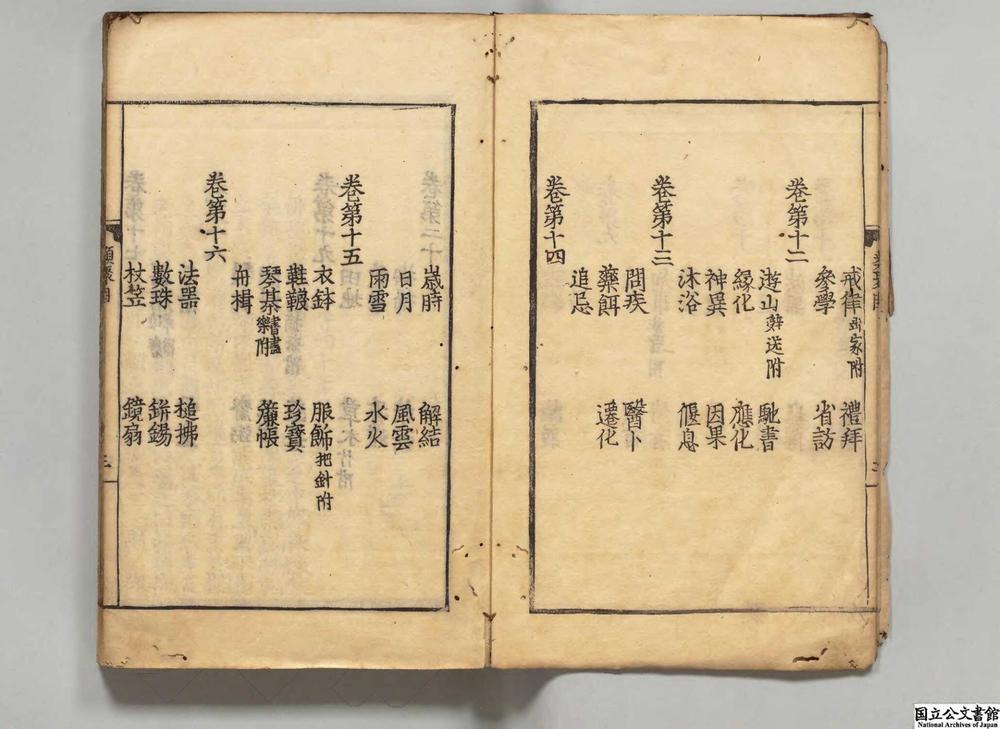 戒律出家附　禮拜
參學　省訪
卷第十二
遊山辭送附　馳書
緣化　應化
神異　因果
沐浴　偃息
卷第十三
問疾　醫卜
藥餌　遷化
追忌
卷第十四
歲時　解結
日月　風雲
雨雪　水火
卷第十五
衣鉢　服飾把針附
鞋韈　珍寶
琴棊書畫樂附　簾帳
舟楫
卷第十六
法器　槌拂
數珠　鉼錫
杖笠　鏡扇
類聚目
三
国立公文書館
National Archives of Japan